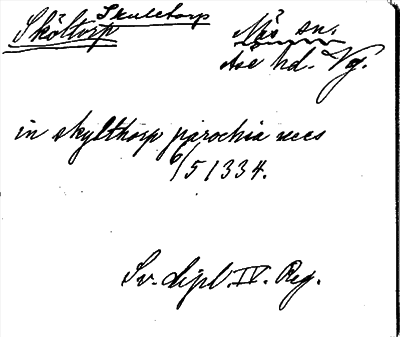 Skuletorp
Sköltorp Näs sn.
Åse hd. Vg.
in skylthorp parochia næs
6/5 1334.
Sv. dipl. IV. Reg.